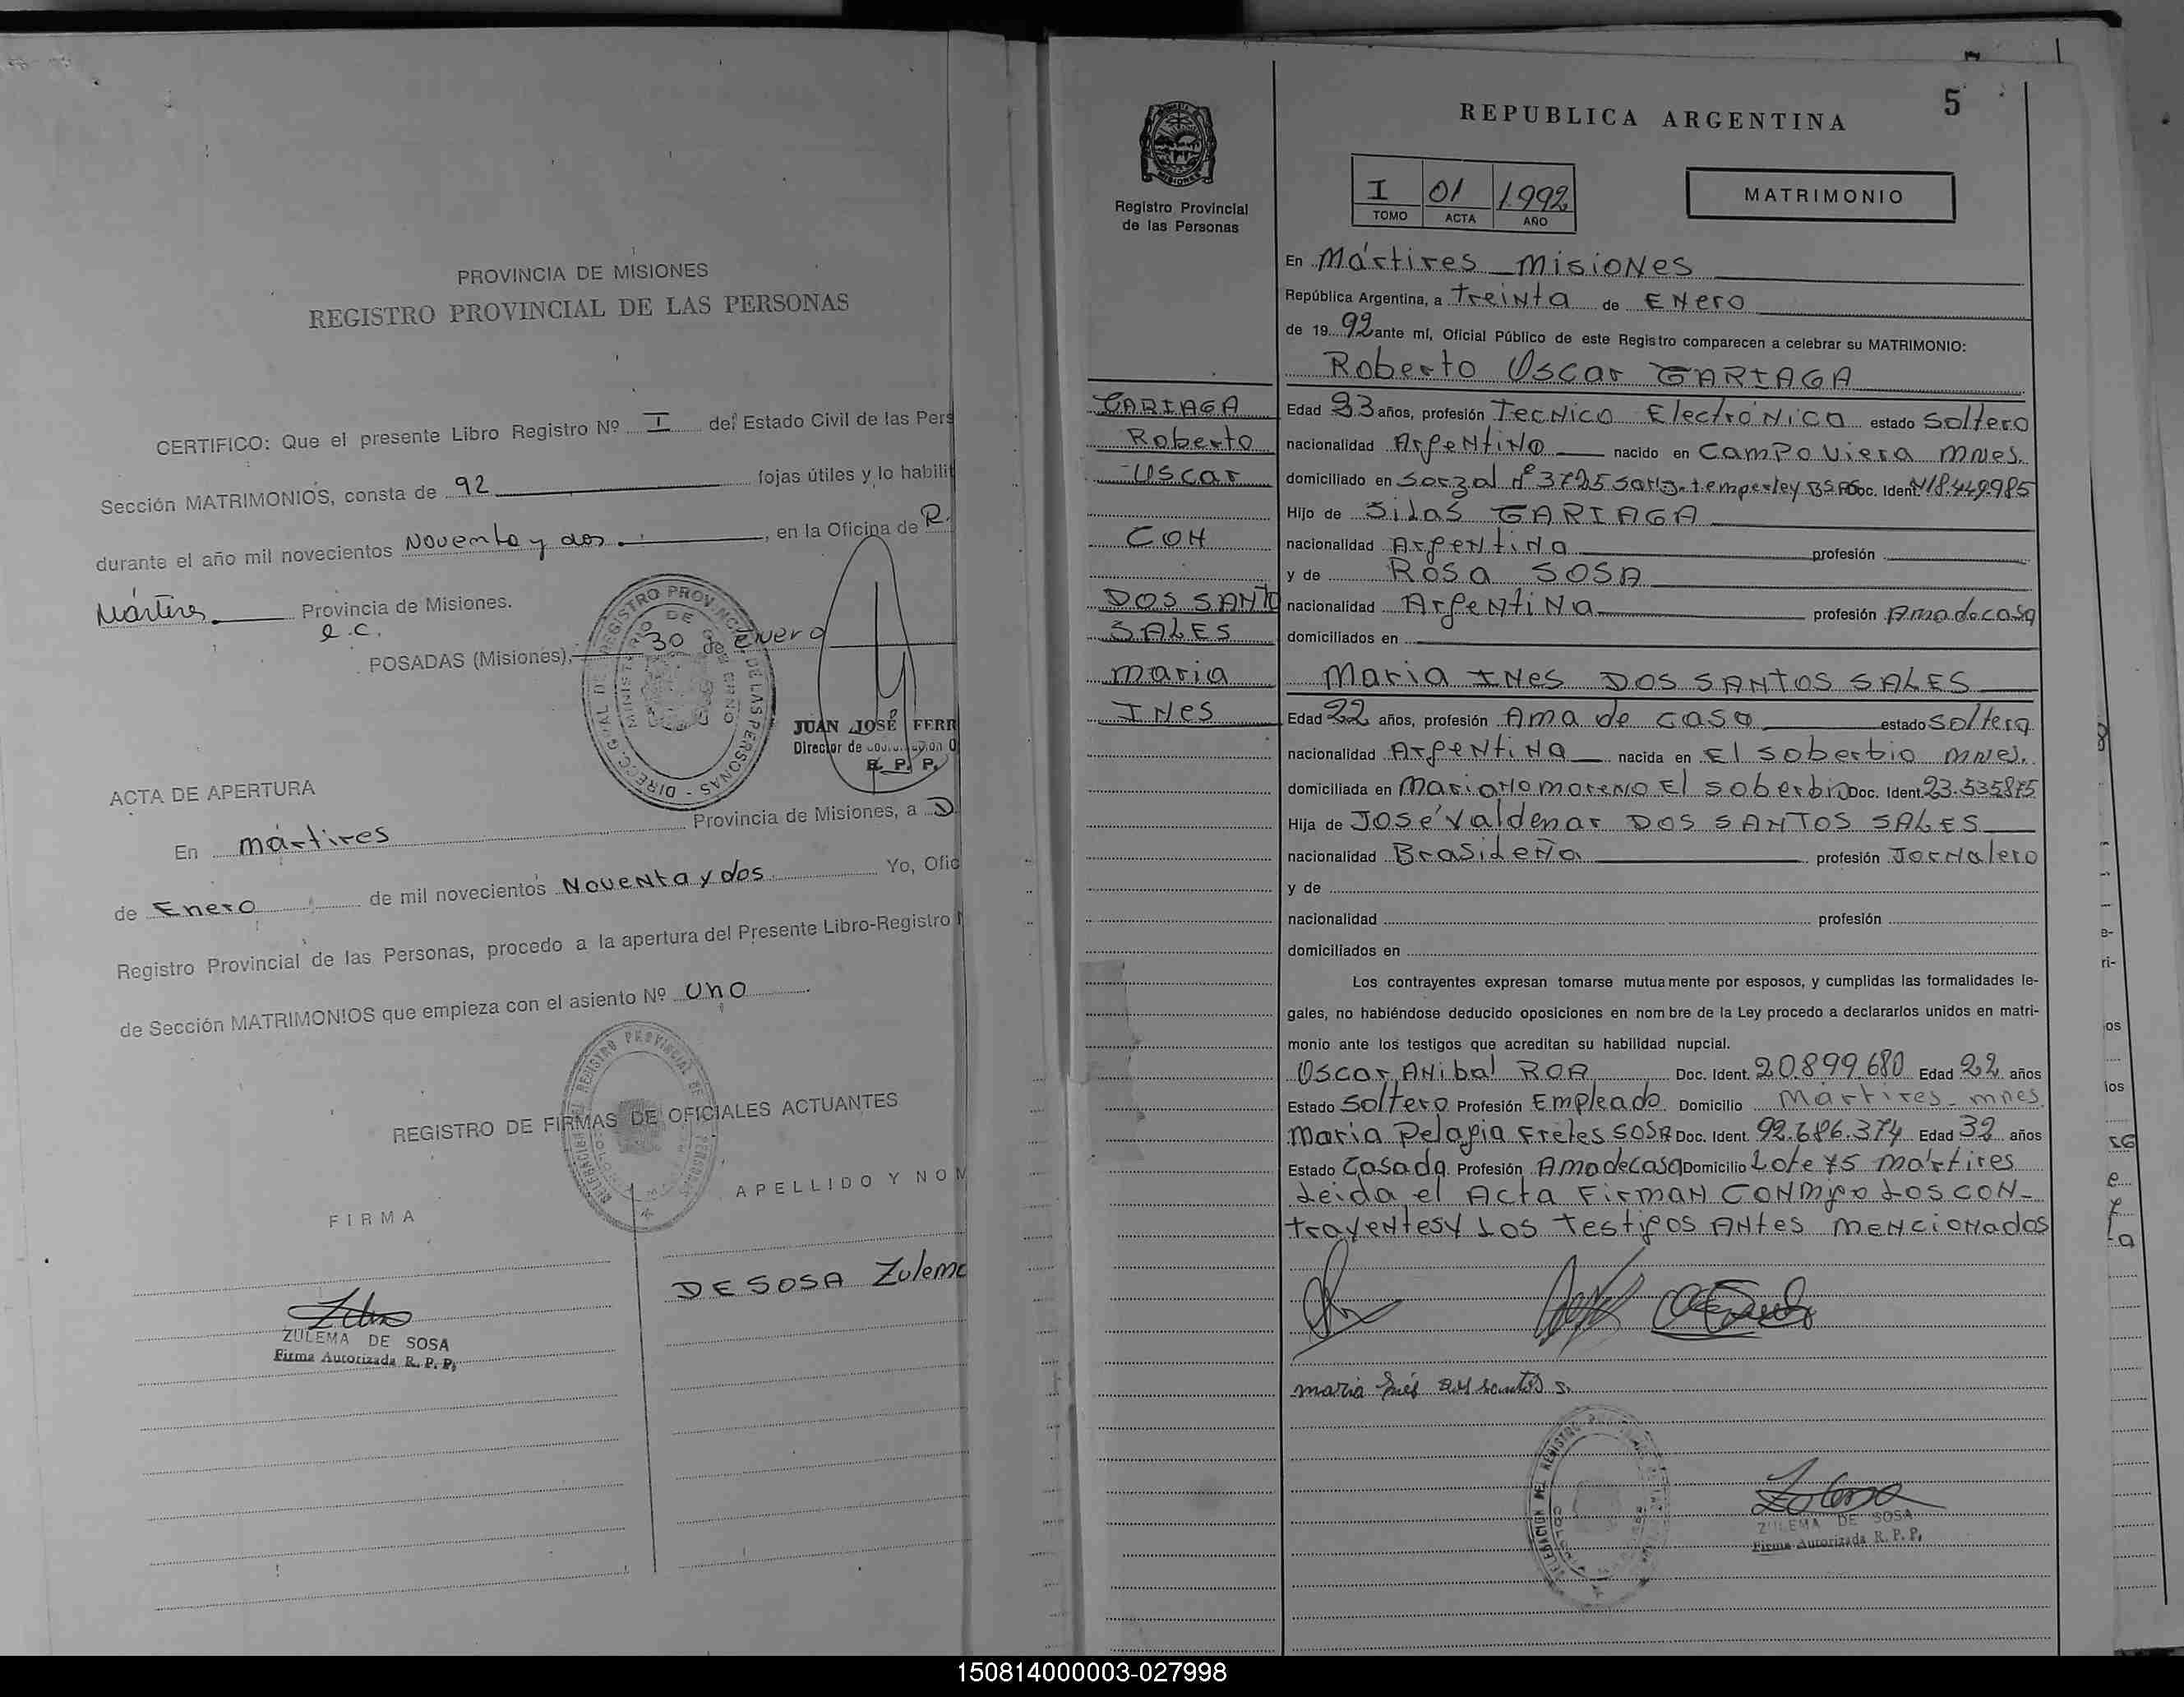 PROVINCIA DE MISIONES
REGISTRO PROVINCIAL DE LAS PERSONAS
CERTIFICO: Que el presente Libro Registro Nº I del Estado Civil de las Pers
Sección MATRIMONIOS, consta de 92 fojas útiles y lo habilit
durante el año mil novecientos Noventa y dos, en la Oficina de R.
Mártires Provincia de Misiones.
e.c.
POSADAS (Misiones), 30 de Enero
JUAN JOSÉ FERR
Director de
R. P. P.
ACTA DE APERTURA
En mártires Provincia de Misiones, a D
de Enero de mil novecientos Noventa y dos Yo, Ofic
Registro Provincial de las Personas, procedo a la apertura del Presente Libro-Registro
de Sección MATRIMONIOS que empieza con el asiento Nº uno
REGISTRO DE FIRMAS DE OFICIALES ACTUANTES
FIRMA
APELLIDO Y NOM
DE SOSA Zulema
ZULEMA DE SOSA
Firma Autorizada R. P. P.
5
REPUBLICA ARGENTINA
Registro Provincial
de las Personas
I 01 1.992
TOMO ACTA AÑO
MATRIMONIO
En Mártires misiones
República Argentina, a treinta de Enero
de 19 92 ante mí, Oficial Público de este Registro comparecen a celebrar su MATRIMONIO:
Roberto Oscar CARIAGA
CARIAGA
Roberto
Oscar
CON
DOS SANTO
SALES
maria
INes
Edad 23 años, profesión Tecnico Electrónico estado soltero
nacionalidad Argentino nacido en Campo Viera mnes.
domiciliado en Sorzal nº 3725 temperley BSAS Doc. Ident. Nº 18.449.985
Hijo de Silas CARIAGA
nacionalidad Argentina profesión
y de Rosa SOSA
nacionalidad Argentina profesión Ama de casa
domiciliados en
Maria INes DOS SANTOS SALES
Edad 22 años, profesión Ama de casa estado soltera
nacionalidad Argentina nacida en El soberbio mnes.
domiciliada en Mariano moreno El soberbio Doc. Ident. 23.535875
Hija de José Valdenar DOS SANTOS SALES
nacionalidad Brasileña profesión Jornalero
y de
nacionalidad profesión
domiciliados en
Los contrayentes expresan tomarse mutuamente por esposos, y cumplidas las formalidades le-
gales, no habiéndose deducido oposiciones en nombre de la Ley procedo a declararlos unidos en matri-
monio ante los testigos que acreditan su habilidad nupcial.
Oscar Anibal ROA Doc. Ident. 20.899.680 Edad 22 años
Estado Soltero Profesión Empleado Domicilio Martires - mnes.
Maria Pelagia Freles SOSA Doc. Ident. 92.686.374 Edad 32 años
Estado Casada Profesión Ama de casa Domicilio Lote 75 mártires
Leida el Acta Firman conmigo los con-
trayentes y los testigos Antes mencionados
maria Inés dos santos s.
ZULEMA DE SOSA
Firma Autorizada R. P. P.
150814000003-027998